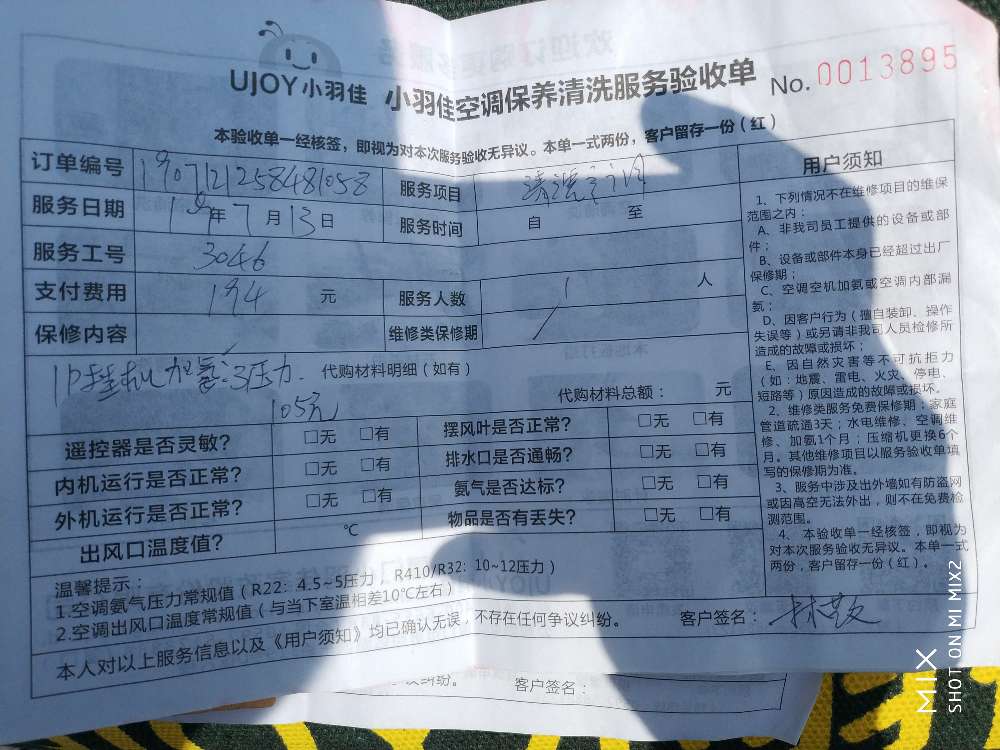 UJOY小羽佳 小羽佳空调保养清洗服务验收单 No. 0013895
本验收单一经核签，即视为对本次服务验收无异议。本单一式两份，客户留存一份（红）
订单编号 服务项目
服务日期 19年7月13日 服务时间 自 至
服务工号 3046
支付费用 194 元 服务人数 1 人
保修内容 维修类保修期
1P挂机加氨:3压力. 代购材料明细（如有）
105元 代购材料总额： 元
遥控器是否灵敏？ □无 □有 摆风叶是否正常？ □无 □有
内机运行是否正常？ □无 □有 排水口是否通畅？ □无 □有
外机运行是否正常？ □无 □有 氨气是否达标？ □无 □有
出风口温度值？ ℃ 物品是否有丢失？ □无 □有
温馨提示：
1.空调氨气压力常规值（R22：4.5~5压力，R410/R32：10~12压力）
2.空调出风口温度常规值（与当下室温相差10℃左右）
本人对以上服务信息以及《用户须知》均已确认无误，不存在任何争议纠纷。 客户签名：
用户须知
1、下列情况不在维修项目的维保
范围之内：
A、非我司员工提供的设备或部
件；
B、设备或部件本身已经超过出厂
保修期；
C、空调空机加氨或空调内部漏
氨；
D、因客户行为（擅自装卸、操作
失误等）或另请非我司人员检修所
造成的故障或损坏；
E、因自然灾害等不可抗拒力
（如：地震、雷电、火灾、停电、
短路等）原因造成的故障或损坏。
2、维修类服务免费保修期：家庭
管道疏通3天；水电维修、空调维
修、加氨1个月；压缩机更换6个
月。其他维修项目以服务验收单填
写的保修期为准。
3、服务中涉及出外墙如有防盗网
或因高空无法外出，则不在免费检
测范围。
4、本验收单一经核签，即视为
对本次服务验收无异议。本单一式
两份，客户留存一份（红）。
纠纷。 客户签名：
MIX
SHOT ON MI MIX2